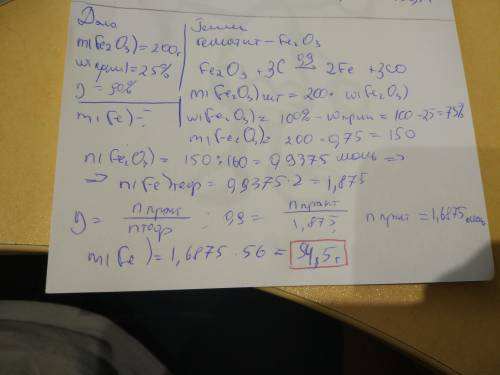 Дано
m(Fe2O3)=200г
w(прим)=25%
η=90%
m(Fe)-?
гематит-Fe2O3
Fe2O3 + 3C 0,9 = 2Fe + 3CO
m(Fe2O3)чист = 200 · w(Fe2O3)
w(Fe2O3) = 100% - wприм = 100-25=75%
m(Fe2O3)= 200·0,75 = 150
n(Fe2O3) = 150:160 = 0,9375 моль =>
=> n(Fe)теор = 0,9375·2 = 1,875
η = nпракт/nтеор ; 0,9 = nпракт/1,875 ; nпракт = 1,6875 моль
m(Fe) = 1,6875 · 56 = 94,5г